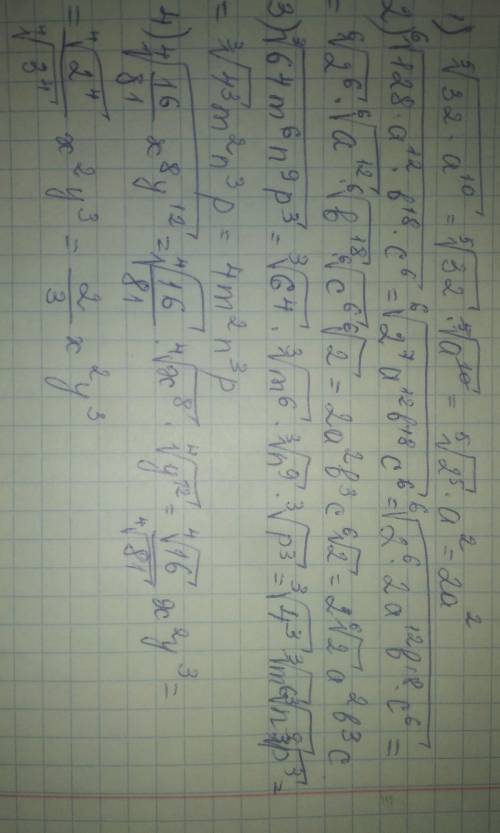 1) ⁵√32·a¹⁰ = ⁵√32 · ⁵√a¹⁰ = ⁵√2⁵ · a² = 2a²
2) ⁶√128·a¹²·b¹⁸·c⁶ = ⁶√2⁷a¹²b¹⁸c⁶ = ⁶√2⁶·2a¹²b¹⁸·c⁶ =
= ⁶√2⁶ · ⁶√a¹² · ⁶√b¹⁸ ⁶√c⁶ ⁶√2 = 2a²b³c ⁶√2 = 2 ⁶√2 a²b³c
3) ³√64m⁶n⁹p³ = ³√64 · ³√m⁶ · ³√n⁹ · ³√p³ = ³√4³ ³√m⁶ ³√n⁹ ³√p³ =
= ³√4³ m²n³p = 4m²n³p
4) ⁴√16/81 x⁸y¹² = ⁴√16/81 · ⁴√x⁸ · ⁴√y¹² = ⁴√16/⁴√81 x²y³ =
= ⁴√2⁴/⁴√3⁴ x²y³ = 2/3 x²y³